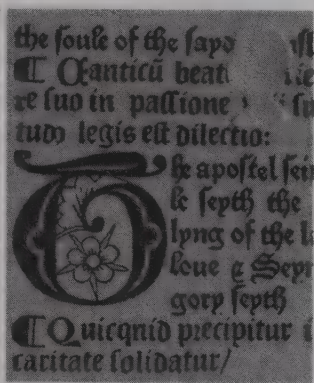 the soule of the sayd
¶ Canticū beat
re suo in passione
tudo legis est dilectio:
The apostel sein
le seyth the
lyng of the l
loue ⁊ Seyn
gory seyth
¶ Quicquid precipitur i
caritate solidatur/